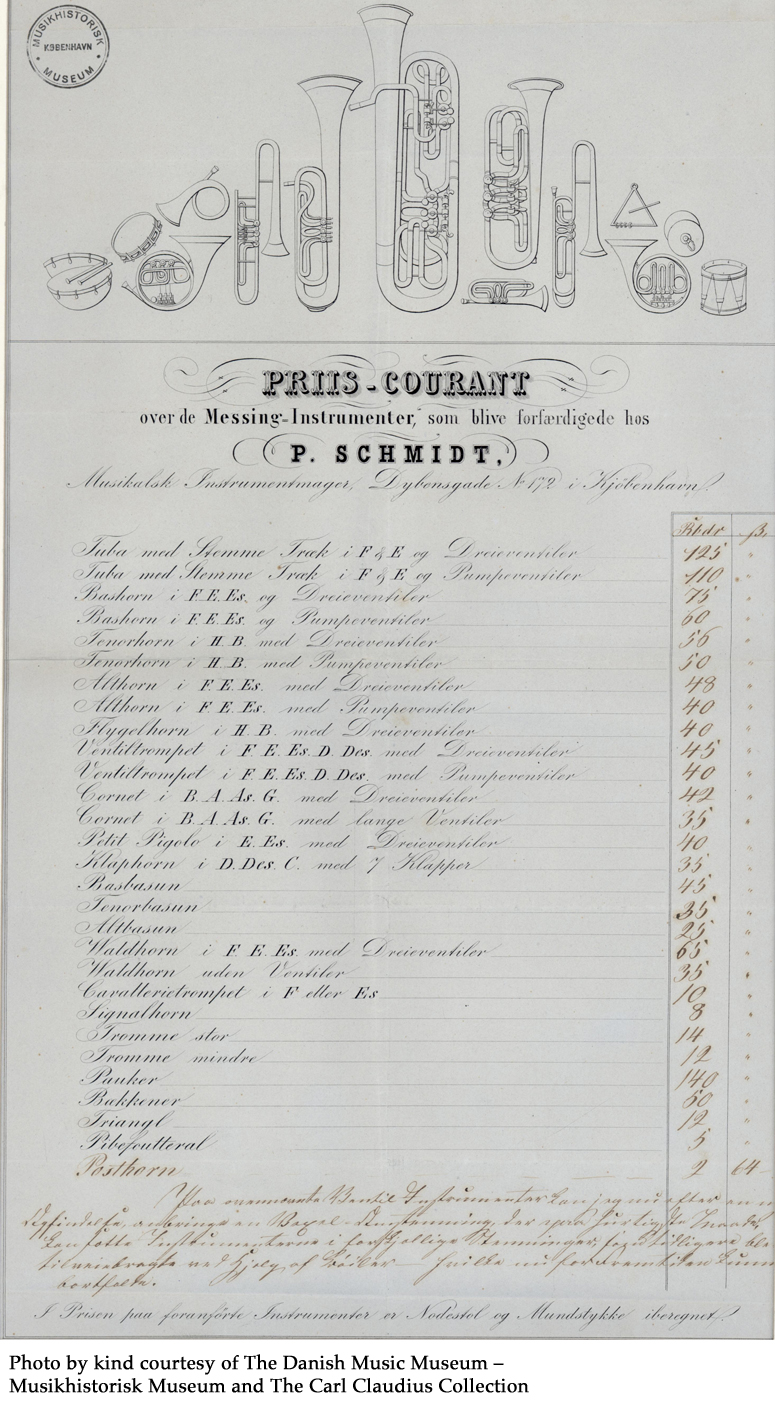 MUSIKHISTORISK
KØBENHAVN
MUSEUM
PRIIS-COURANT
over de Messing-Instrumenter, som blive forfærdigede hos
P. SCHMIDT,
Musikalsk Instrumentmager, Dybensgade No 172 i Kjöbenhavn.
Rbdr ß.
Tuba med Stemme Træk i F & E og Dreieventiler 125 "
Tuba med Stemme Træk i F & E og Pumpeventiler 110 "
Bashorn i F. E. Es. og Dreieventiler 75 "
Bashorn i F. E. Es. og Pumpeventiler 60 "
Tenorhorn i H. B. med Dreieventiler 56 "
Tenorhorn i H. B. med Pumpeventiler 50 "
Althorn i F. E. Es. med Dreieventiler 48 "
Althorn i F. E. Es. med Pumpeventiler 40 "
Flygelhorn i H. B. med Dreieventiler 40 "
Ventiltrompet i F. E. Es. D. Des. med Dreieventiler 45 "
Ventiltrompet i F. E. Es. D. Des. med Pumpeventiler 40 "
Cornet i B. A. As. G. med Dreieventiler 42 "
Cornet i B. A. As. G. med lange Ventiler 35 "
Petit Pigolo i E. Es. med Dreieventiler 40 "
Klaphorn i D. Des. C. med 7 Klapper 35 "
Basbasun 45 "
Tenorbasun 35 "
Altbasun 25 "
Waldhorn i F. E. Es. med Dreieventiler 65 "
Waldhorn uden Ventiler 35 "
Cavallerietrompet i F eller Es 10 "
Signalhorn 8 "
Tromme stor 14 "
Tromme mindre 12 "
Pauker 140 "
Bækkener 50 "
Triangl 12 "
Pibefoutteral 5 "
Posthorn 2 64
Paa ovennævnte Ventil Instrumenter kan jeg nu efter en
Opfindelse, anbringe en der paa hurtigste Maade
kan sætte Instrumenterne i forskjellige Stemninger, tidligere
tilveiebragte ved Hjelp af Böiler hvilke nu for Fremtiden
bortfalde.
I Prisen paa foranförte Instrumenter er Nodestol og Mundstykke iberegnet.
Photo by kind courtesy of The Danish Music Museum –
Musikhistorisk Museum and The Carl Claudius Collection